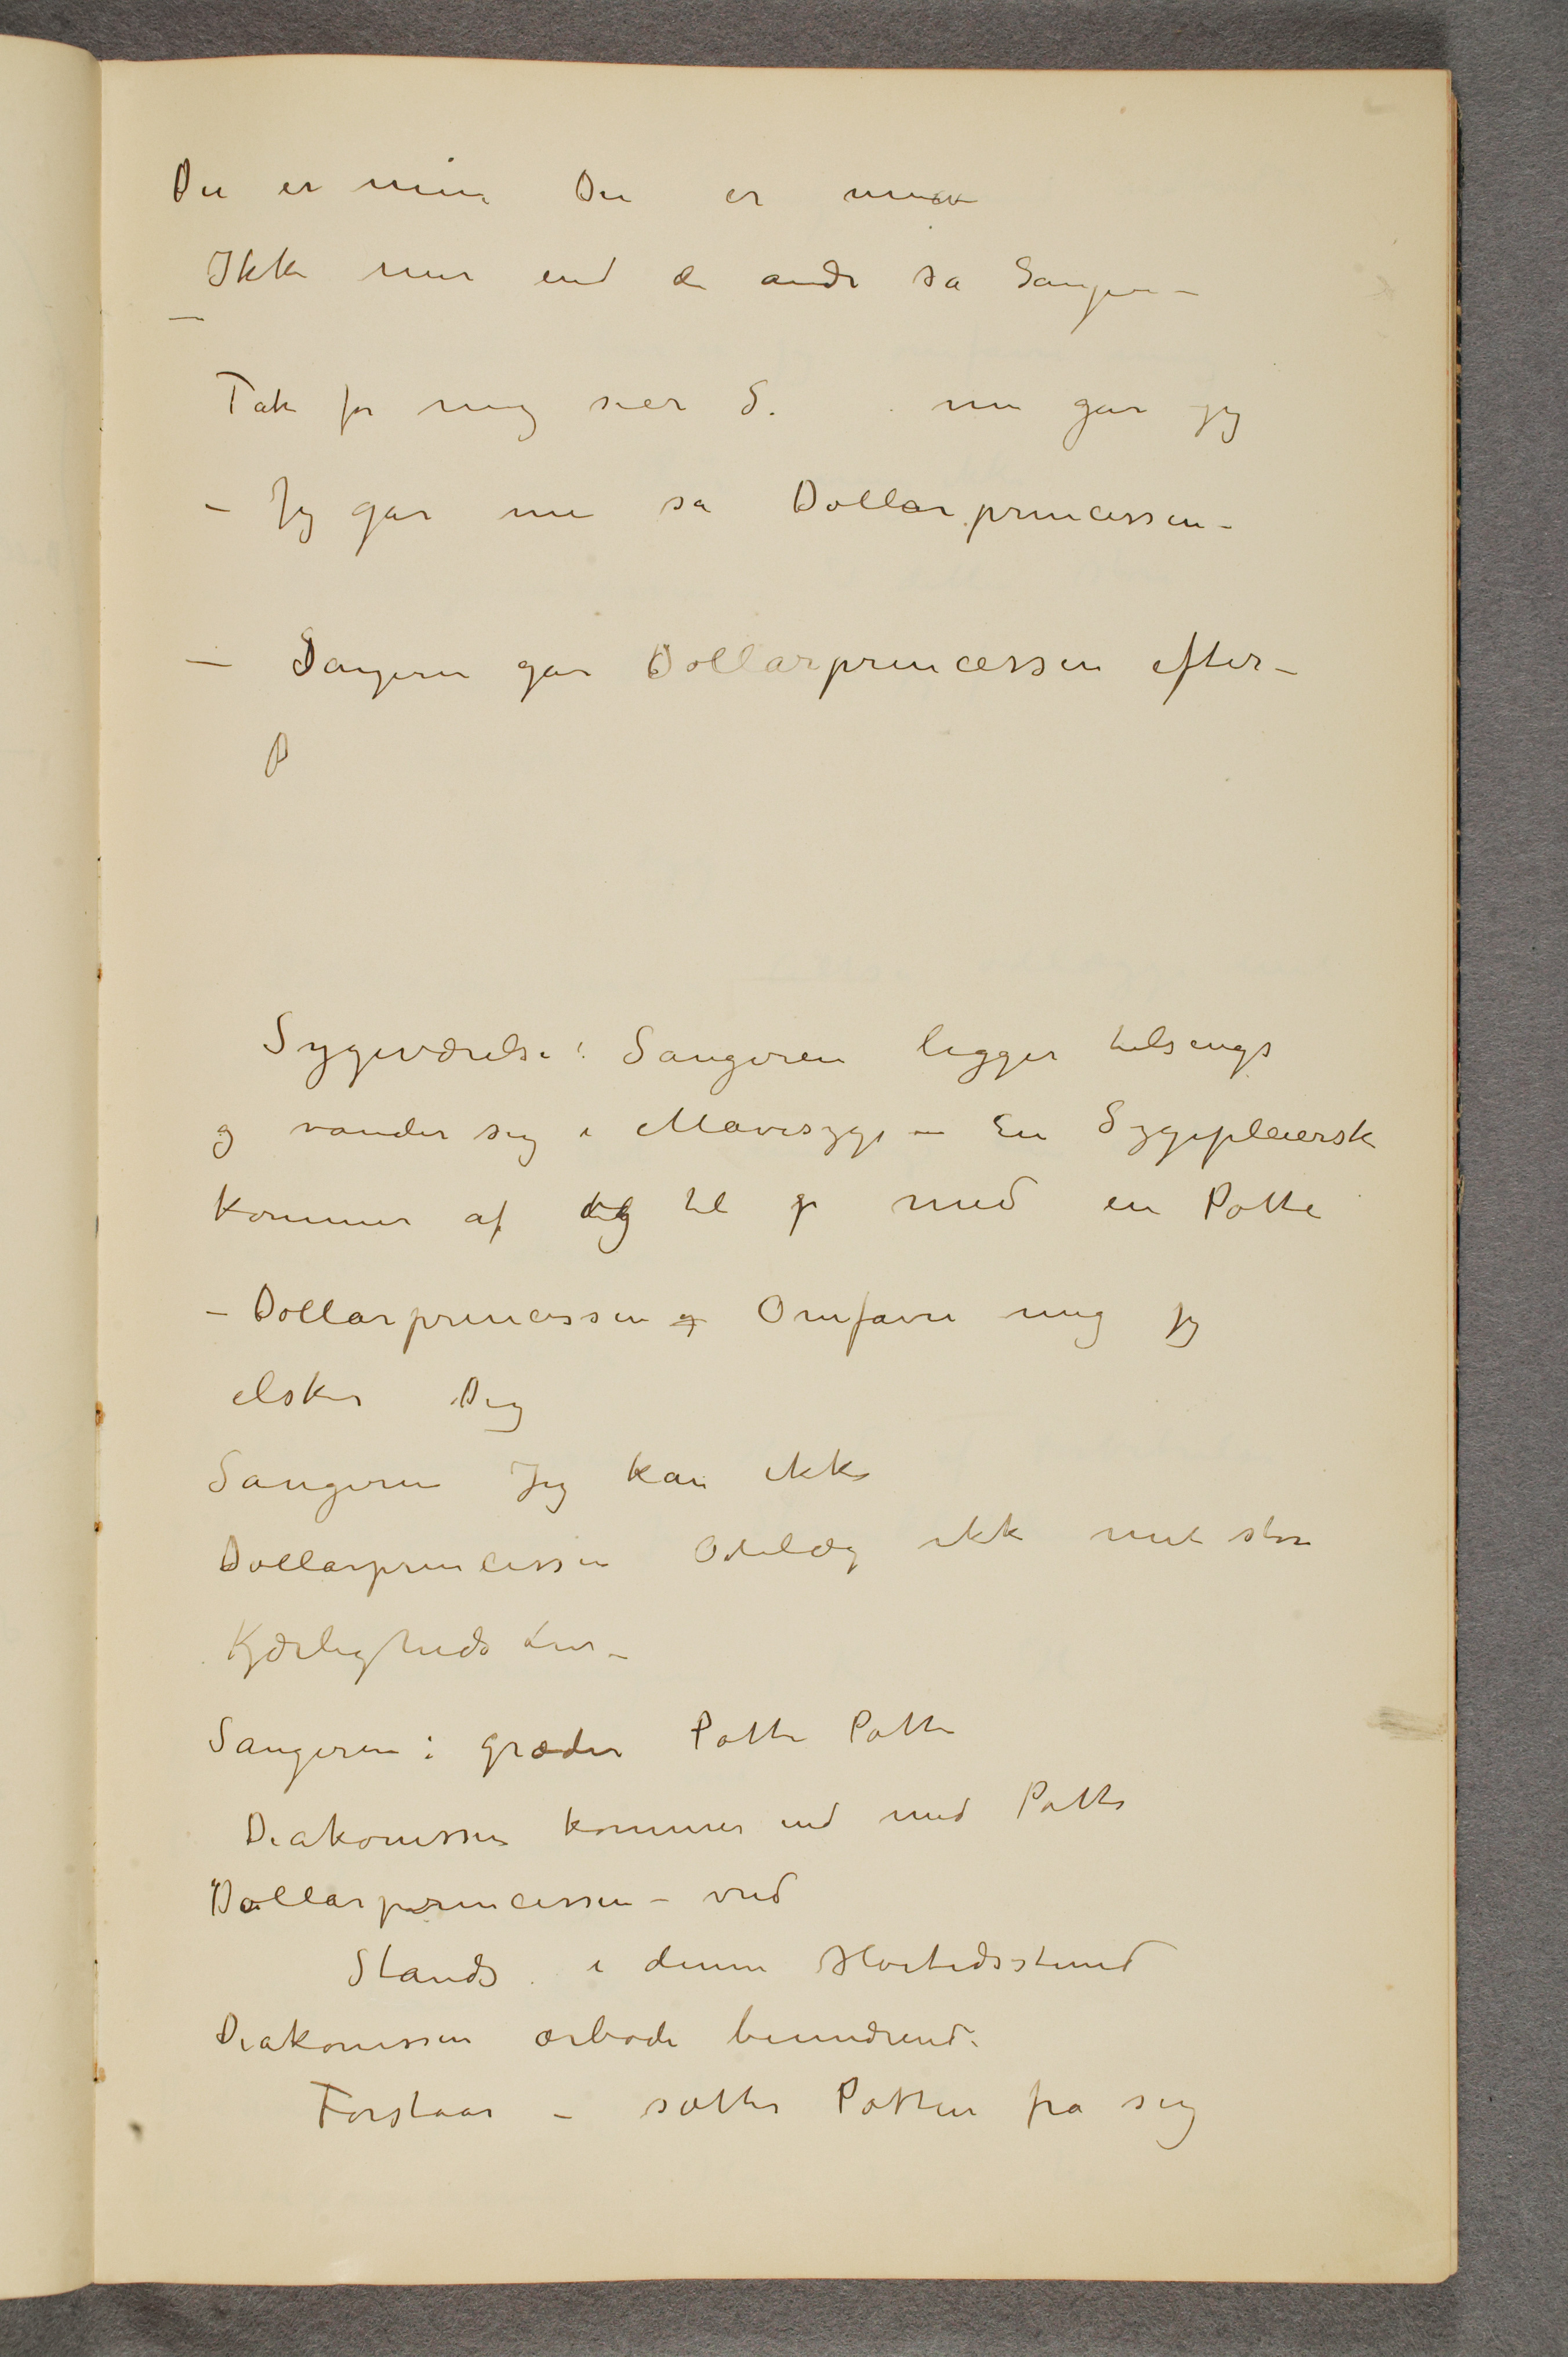 Du er min Du er min
Ikke mer end de andre sa Sangeren –
–
Tak for mig sier S. nu gar jeg
– Jeg gar nu sa Dollarprincessen –
– Sangeren gar Dollarprincessen efter –
D
Sygeværelse: Sangeren ligger tilsengs
og vander sig i Mavesyge – En Sygepleierske
kommer af og til med en Potte
– Dollarprincessen Omfavn mig jeg
elsker Dig
Sangeren Jeg kan ikke
Dollarprincessen Ødelæg ikke mit store
Kjærligheds
Sangeren: græder Potte Potte
Diakonissen kommer ind med Potte
Dollarprincessen – vred
Stands i denne Høitidsstund
Diakonissen ærbødi beundrend.
Forstaar – sætter Potten fra sig